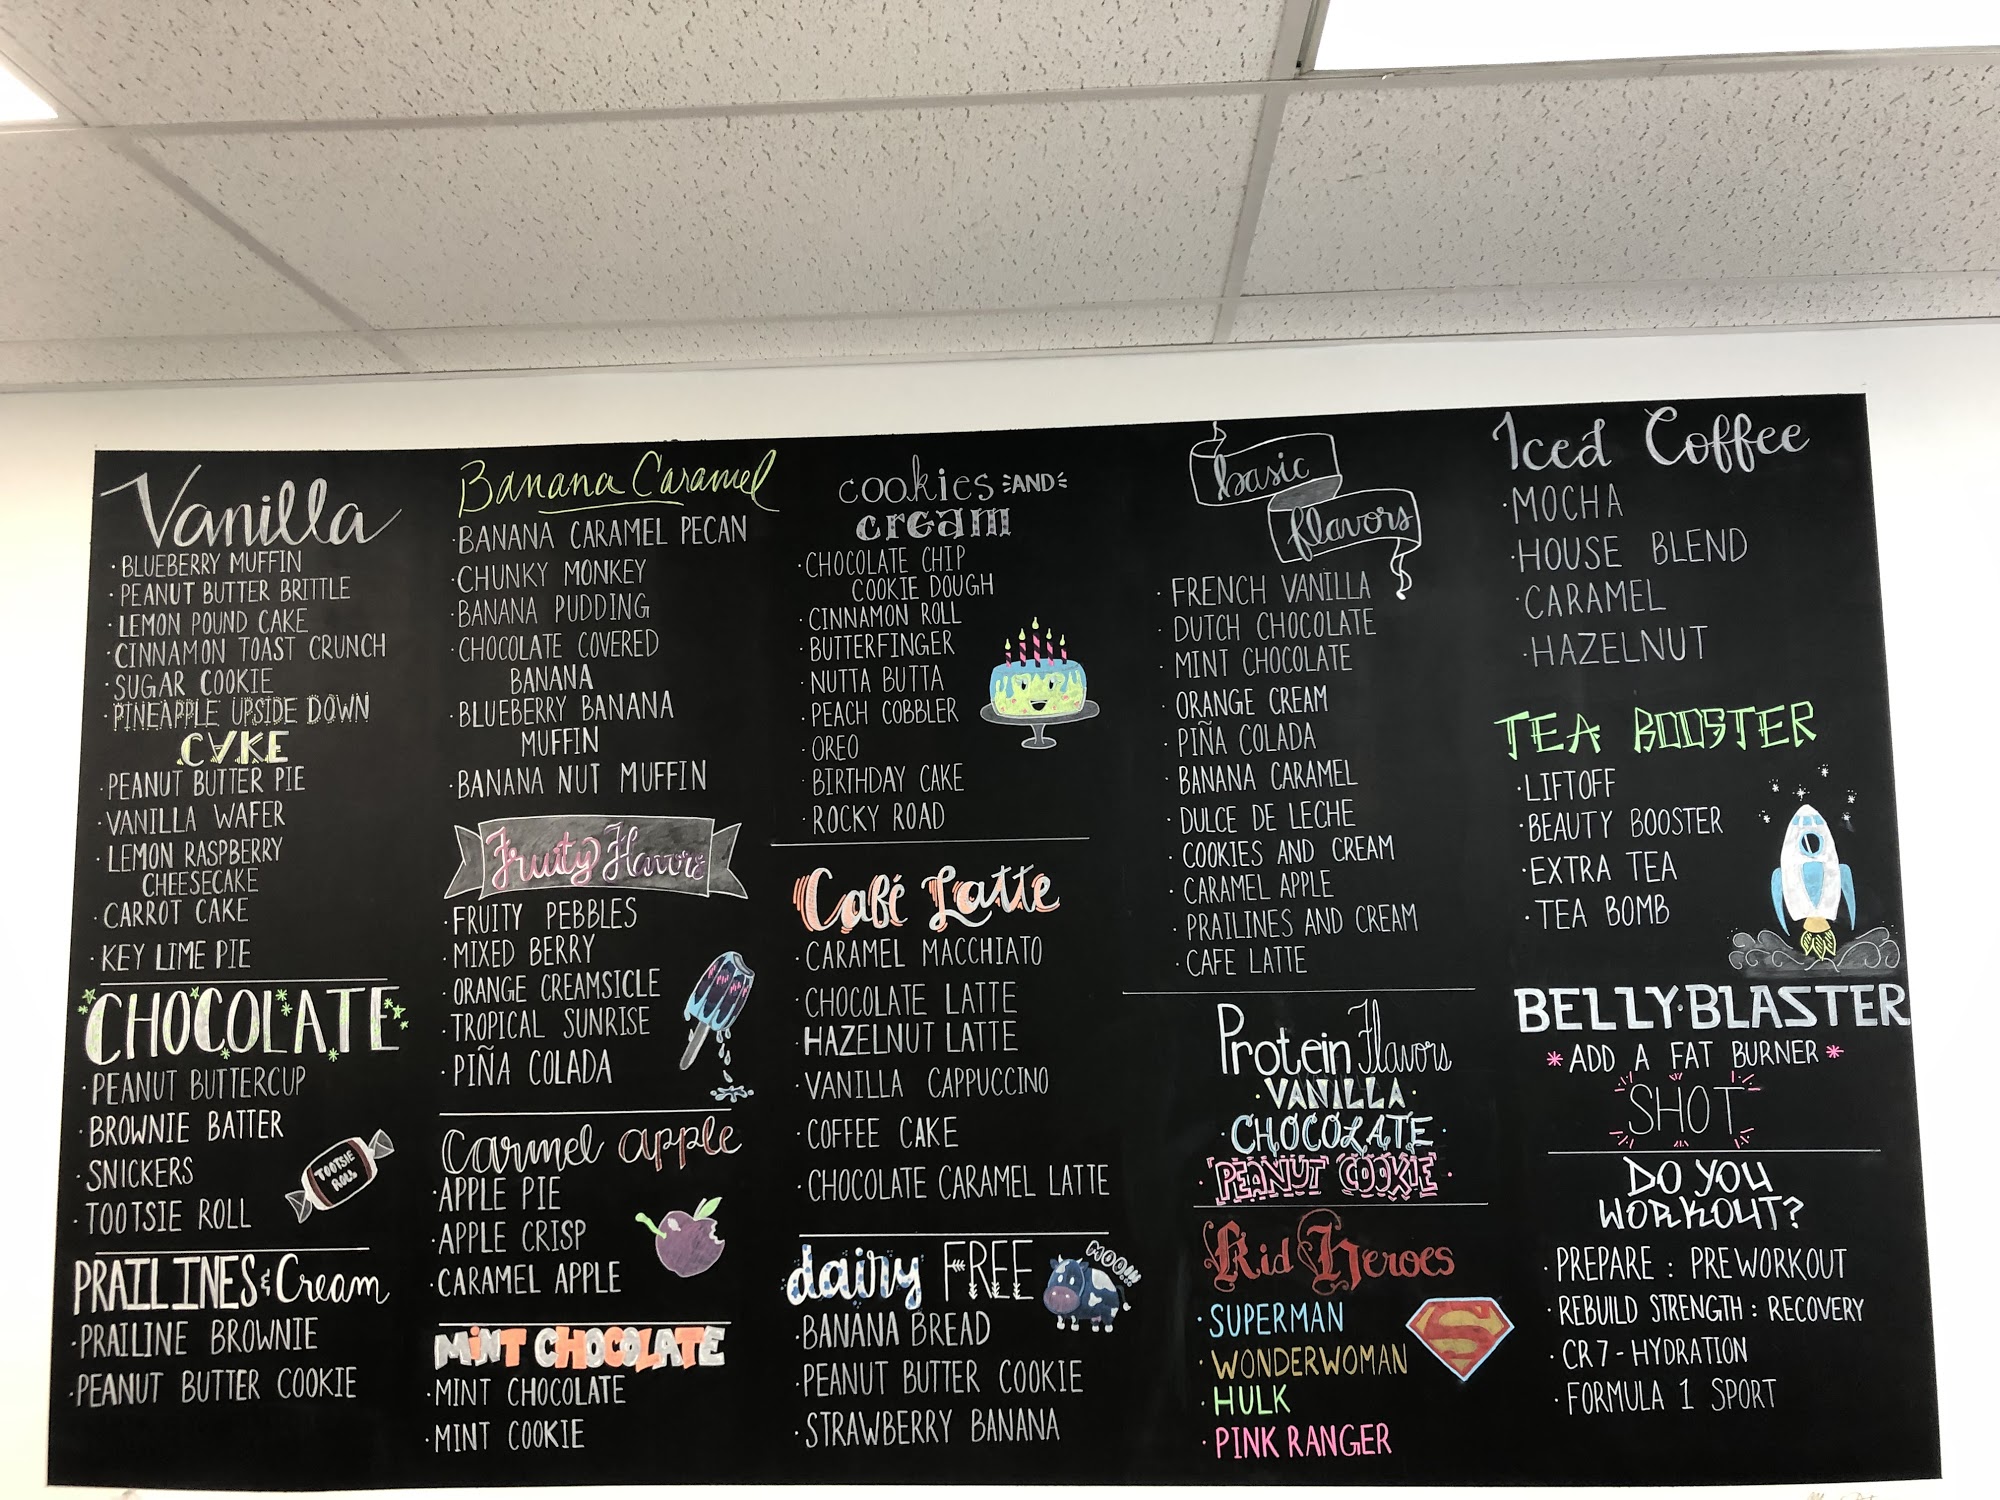 Vanilla
· BLUEBERRY MUFFIN
· PEANUT BUTTER BRITTLE
· LEMON POUND CAKE
· CINNAMON TOAST CRUNCH
· SUGAR COOKIE
· PINEAPPLE UPSIDE DOWN
CAKE
· PEANUT BUTTER PIE
· VANILLA WAFER
· LEMON RASPBERRY
CHEESECAKE
· CARROT CAKE
· KEY LIME PIE
CHOCOLATE
· PEANUT BUTTERCUP
· BROWNIE BATTER
· SNICKERS
· TOOTSIE ROLL
TOOTSIE
ROLL
PRAILINES & Cream
· PRAILINE BROWNIE
· PEANUT BUTTER COOKIE
Banana Caramel
· BANANA CARAMEL PECAN
· CHUNKY MONKEY
· BANANA PUDDING
· CHOCOLATE COVERED
BANANA
· BLUEBERRY BANANA
MUFFIN
· BANANA NUT MUFFIN
Fruity Flavors
· FRUITY PEBBLES
· MIXED BERRY
· ORANGE CREAMSICLE
· TROPICAL SUNRISE
· PIÑA COLADA
Carmel apple
· APPLE PIE
· APPLE CRISP
· CARAMEL APPLE
MINT CHOCOLATE
· MINT CHOCOLATE
· MINT COOKIE
cookies AND
cream
· CHOCOLATE CHIP
COOKIE DOUGH
· CINNAMON ROLL
· BUTTERFINGER
· NUTTA BUTTA
· PEACH COBBLER
· OREO
· BIRTHDAY CAKE
· ROCKY ROAD
Café Latte
· CARAMEL MACCHIATO
· CHOCOLATE LATTE
· HAZELNUT LATTE
· VANILLA CAPPUCCINO
· COFFEE CAKE
· CHOCOLATE CARAMEL LATTE
dairy FREE
MOO!!!
· BANANA BREAD
· PEANUT BUTTER COOKIE
· STRAWBERRY BANANA
basic
flavors
· FRENCH VANILLA
· DUTCH CHOCOLATE
· MINT CHOCOLATE
· ORANGE CREAM
· PIÑA COLADA
· BANANA CARAMEL
· DULCE DE LECHE
· COOKIES AND CREAM
· CARAMEL APPLE
· PRAILINES AND CREAM
· CAFE LATTE
Protein Flavors
· VANILLA ·
· CHOCOLATE ·
· PEANUT COOKIE ·
Kid Heroes
· SUPERMAN
· WONDERWOMAN
· HULK
· PINK RANGER
S
Iced Coffee
· MOCHA
· HOUSE BLEND
· CARAMEL
· HAZELNUT
TEA BOOSTER
· LIFTOFF
· BEAUTY BOOSTER
· EXTRA TEA
· TEA BOMB
BELLY·BLASTER
* ADD A FAT BURNER *
SHOT
DO YOU
WORKOUT?
· PREPARE : PREWORKOUT
· REBUILD STRENGTH : RECOVERY
· CR7 - HYDRATION
· FORMULA 1 SPORT